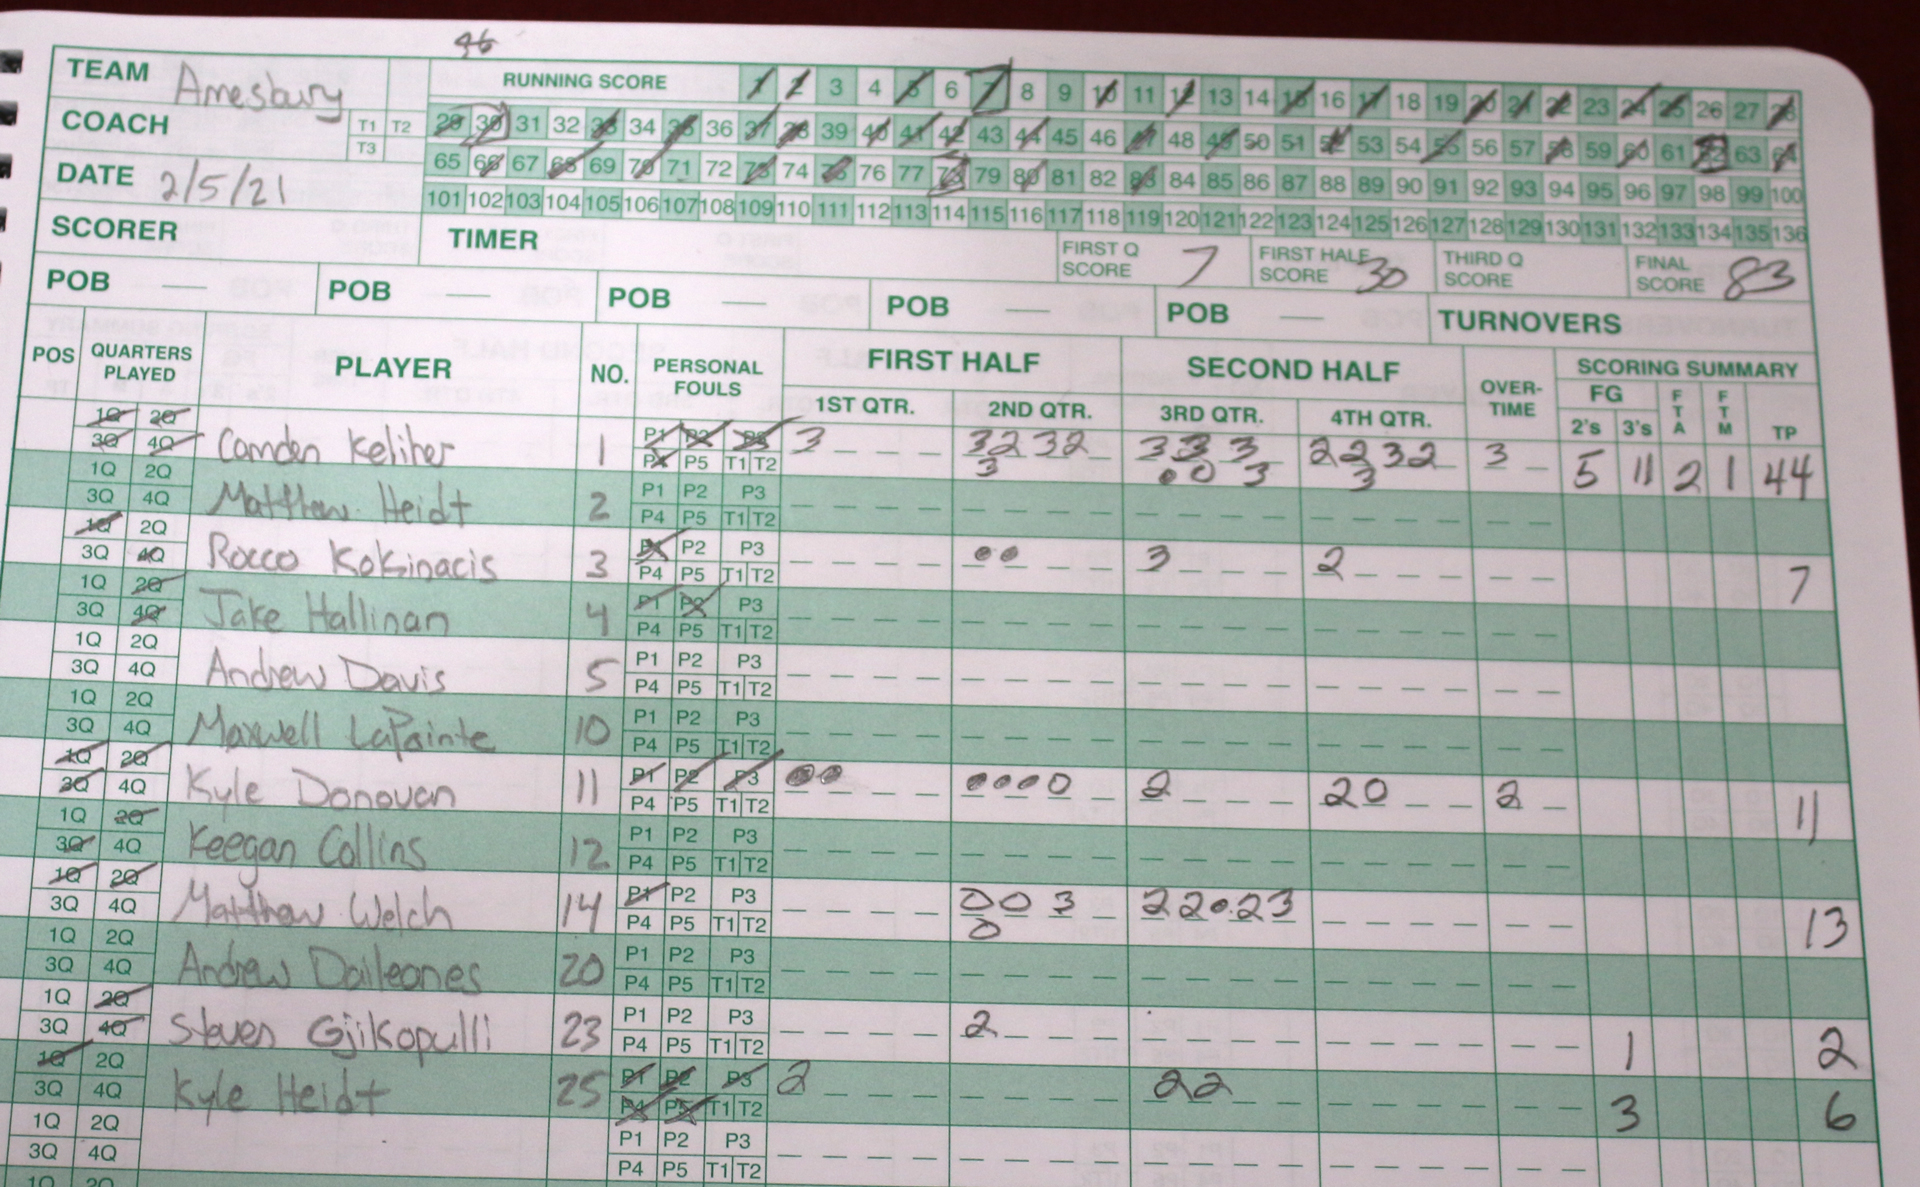 46
TEAM Amesbury RUNNING SCORE 1 2 3 4 5 6 7 8 9 10 11 12 13 14 15 16 17 18 19 20 21 22 23 24 25 26 27 28
COACH T1 T2 T3 29 30 31 32 33 34 35 36 37 38 39 40 41 42 43 44 45 46 47 48 49 50 51 52 53 54 55 56 57 58 59 60 61 62 63 64
65 66 67 68 69 70 71 72 73 74 75 76 77 78 79 80 81 82 83 84 85 86 87 88 89 90 91 92 93 94 95 96 97 98 99 100
DATE 2/5/21 101 102 103 104 105 106 107 108 109 110 111 112 113 114 115 116 117 118 119 120 121 122 123 124 125 126 127 128 129 130 131 132 133 134 135 136
SCORER TIMER FIRST Q SCORE 7 FIRST HALF SCORE 30 THIRD Q SCORE FINAL SCORE 83
POB POB POB POB POB TURNOVERS
POS QUARTERS PLAYED PLAYER NO. PERSONAL FOULS FIRST HALF SECOND HALF OVER-TIME SCORING SUMMARY
1ST QTR. 2ND QTR. 3RD QTR. 4TH QTR. FG 2's 3's FTA FTM TP
1Q 2Q P1 P2 P3 3 3232 333 2232 3
3Q 4Q Camden Keliher 1 P4 P5 T1 T2 3 3 3 5 11 2 1 44
1Q 2Q P1 P2 P3
3Q 4Q Matthew Heidt 2 P4 P5 T1 T2
1Q 2Q P1 P2 P3 3 2
3Q 4Q Rocco Kokinacis 3 P4 P5 T1 T2 7
1Q 2Q P1 P2 P3
3Q 4Q Jake Hallinan 4 P4 P5 T1 T2
1Q 2Q P1 P2 P3
3Q 4Q Andrew Davis 5 P4 P5 T1 T2
1Q 2Q P1 P2 P3
3Q 4Q Maxwell LaPointe 10 P4 P5 T1 T2
1Q 2Q P1 P2 P3 2 20 2
3Q 4Q Kyle Donovan 11 P4 P5 T1 T2 11
1Q 2Q P1 P2 P3
3Q 4Q Keegan Collins 12 P4 P5 T1 T2
1Q 2Q P1 P2 P3 003 22 23
3Q 4Q Matthew Welch 14 P4 P5 T1 T2 0 13
1Q 2Q P1 P2 P3
3Q 4Q Andrew Daileanes 20 P4 P5 T1 T2
1Q 2Q P1 P2 P3 2
3Q 4Q Steven Gjikopulli 23 P4 P5 T1 T2 1 2
1Q 2Q P1 P2 P3 2 22
3Q 4Q Kyle Heidt 25 P4 P5 T1 T2 3 6
1Q 2Q P1 P2 P3
3Q 4Q P4 P5 T1 T2
1Q 2Q